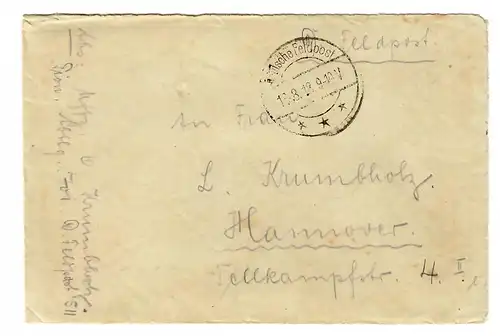 D. Feldpost.
Deutsche Feldpost
13.8.18. 9-10V
* * *
An Frau
L. Krumbholz
Hannover.
Tellkampfstr. 4. II
Abs: Uffz. O. Krumbholz.
Pion.
D. Feldpost 511